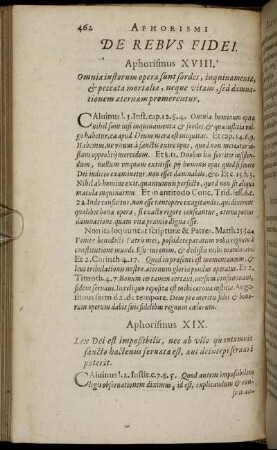 462 APHORISMI
DE REBVS FIDEI.
Aphorismus XVIII.
Omnia iustorum opera sunt sordes, inquinamenta,
& peccata mortalia, neque vitam, sed damna-
tionem aeternam promerentur.
Caluinus l. 3. Inst. cap. 12. §. 4. Omnia hominum opera
nihil sunt nisi inquinamenta & sordes, & quae iustitia vulgo
habetur, ea apud Deum mera est iniquitas. Et c. 14. §. 9.
Habemus, ne vnum à sanctis exire opus, quod non mereatur iu-
stam opprobrij mercedem. Et §. 11. Duobus his fortiter insisten-
dum, nullum vnquam extitisse pij hominis opus quod si seuero
Dei iudicio examinetur, non esset damnabile, &c. Et c. 15. §. 3.
Nihil ab homine exit, quantumuis perfecto, quod non sit aliqua
macula inquinatum. Et in antidoto Conc. Trid. sess. 6.
22. Inde conficitur, non esse tempore exagitandos, qui dicerent
qualibet bona opera, si exacto rigore censeantur, aeterna
damnatione, quàm vitae praemio digna esse.
Non ita loquuntur scripturae & Patres. Matth. 25. 34.
Venite benedicti Patris mei, possidete paratum vobis regnum à
constitutione mundi. Esuriui enim, & dedistis mihi manducare.
Et 2. Corinth 4. 17. Quod in praesenti est momentaneum, &
leue tribulationis nostrae, aeternum gloriae pondus operatur. Et 2.
Timoth. 4. 7. Bonum certamen certaui, cursum consummaui, fi-
dem seruaui. In reliquo reposita est mihi corona iustitiae. Augu-
stinus serm. 62. de tempore. Deus pro meritis fidei & bono-
rum operum dabit suis fidelibus regnum caelorum.
Aphorismus XIX.
Lex Dei est impossibilis, nec ab vllo quantumuis
sancto hactenus seruata est, aut deinceps seruari
poterit.
Caluinus l. 2. Instit. c. 7. §. 5. Quod autem impossibilem
legis obseruationem diximus, id est, explicandum &